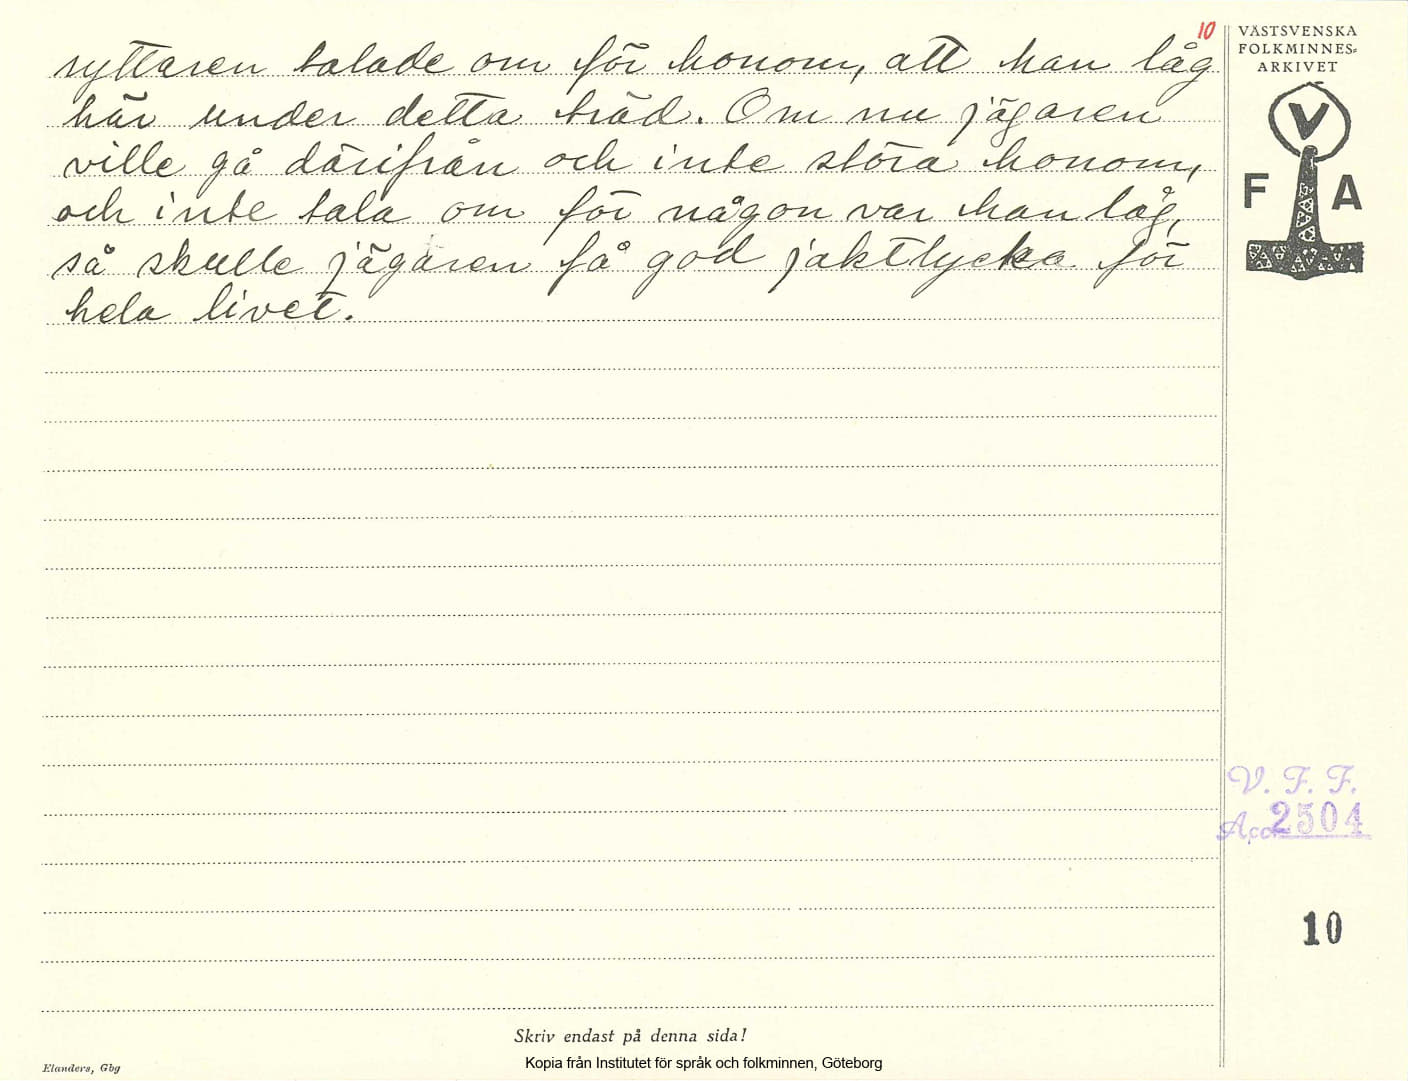 10
ryttaren talade om för honom, att han låg
här under detta träd. Om nu jägaren
ville gå därifrån och inte störa honom,
och inte tala om för någon var han låg,
så skulle jägaren få god jaktlycka för
hela livet.
VÄSTSVENSKA
FOLKMINNES-
ARKIVET
V
F A
V. F. F.
Acc. 2504
10
Skriv endast på denna sida!
Kopia från Institutet för språk och folkminnen, Göteborg
Elanders, Gbg